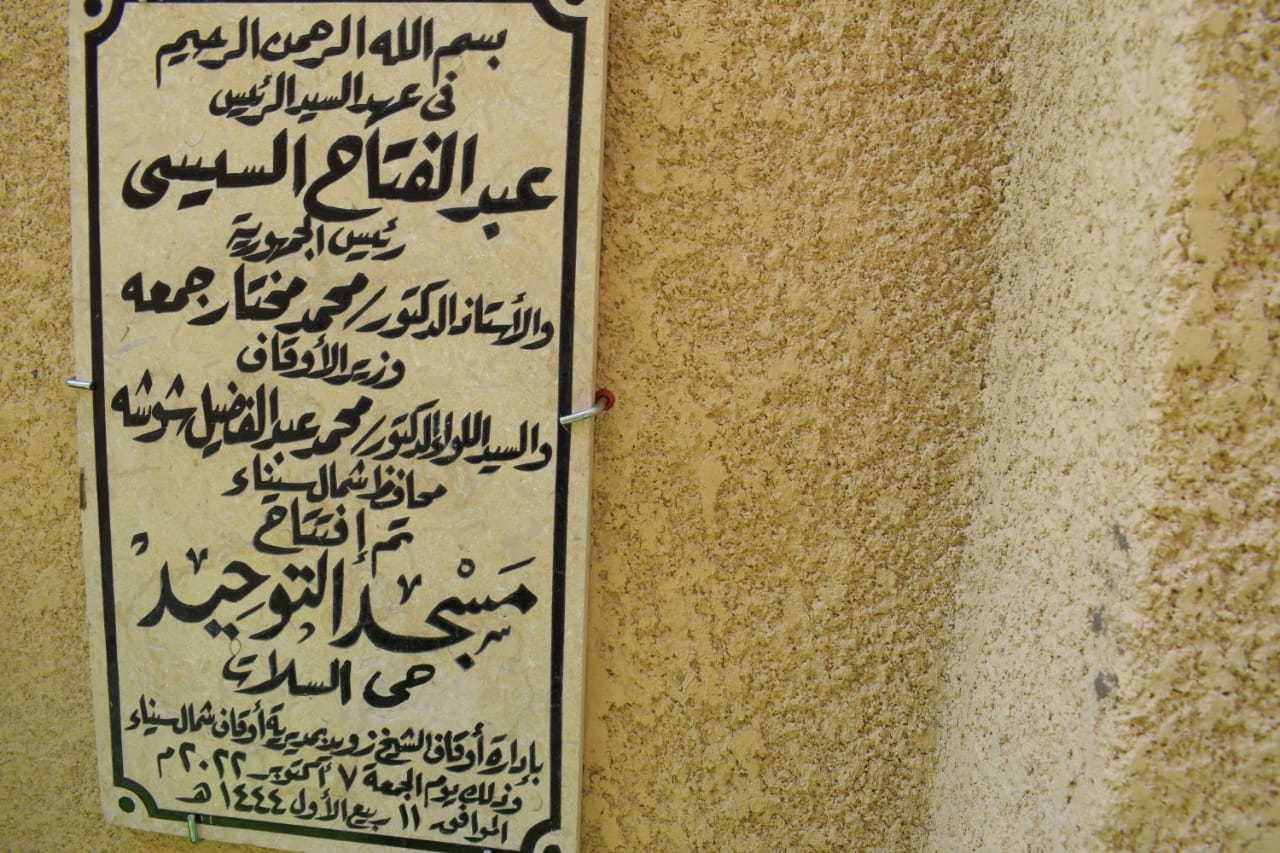 بسم الله الرحمن الرحيم
فى عهد السيد الرئيس
عبد الفتاح السيسى
رئيس الجمهورية
والأستاذ الدكتور/ محمد مختار جمعه
وزير الأوقاف
والسيد اللواء الدكتور/ محمد عبد الفضيل شوشه
محافظ شمال سيناء
تم إفتتاح
مَسْجد التوحِيدْ
حى السلات
بإدارة أوقاف الشيخ زويد بمديرية أوقاف شمال سيناء
وذلك يوم الجمعة ٧ أكتوبر ٢٠٢٢ م
الموافق ١١ ربيع الأول ١٤٤٤ هـ